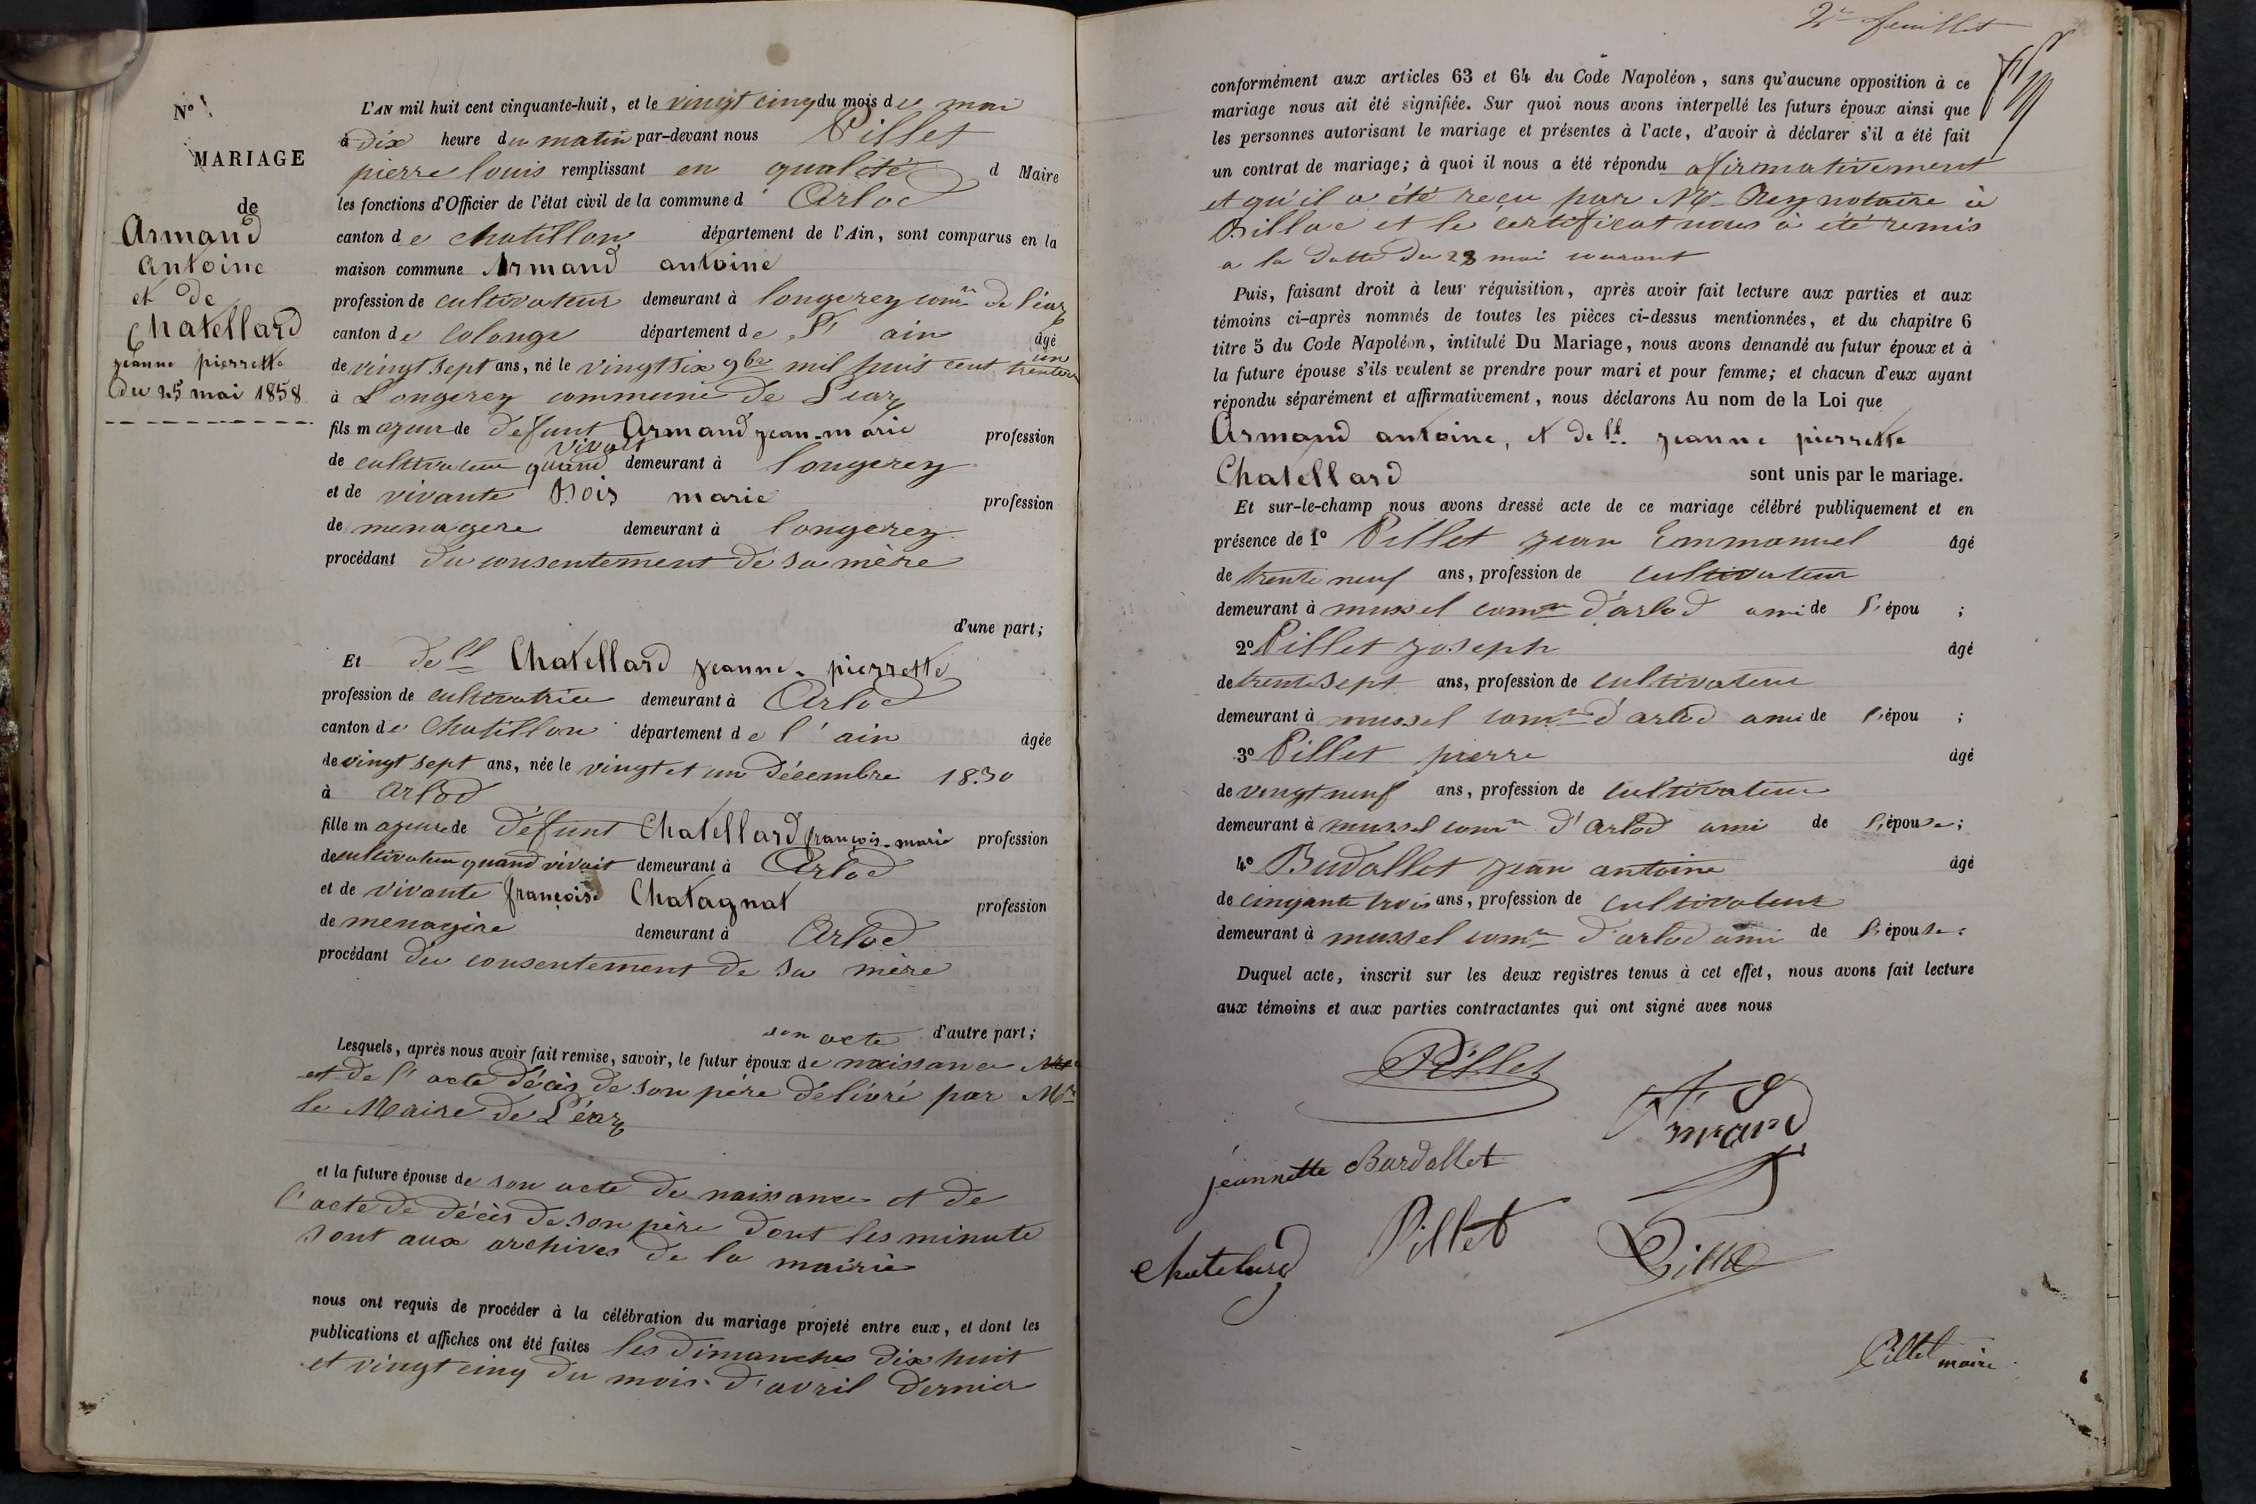 N° 1
MARIAGE
de
Armand
Antoine
et de
Chatellard
jeanne pierrette
du 25 mai 1858
L'AN mil huit cent cinquante-huit, et le vingt cinq du mois de mai
à dix heure du matin par-devant nous Pillet
pierre louis remplissant en qualité d Maire
les fonctions d'Officier de l'état civil de la commune d Arlod
canton de chatillon département de l'Ain, sont comparus en la
maison commune Armand antoine
profession de cultivateur demeurant à longerey comne de léaz
canton de colonge département de l'ain âgé
de vingt sept ans, né le vingt six 9bre mil huit cent trente un
à Longerey commune de Léaz
fils majeur de defunt Armand jean-marie profession
de cultivateur quand vivait demeurant à longerey
et de vivante Bois marie profession
de menagere demeurant à longerey
procédant du consentement de sa mère
d'une part;
Et delle Chatellard jeanne-pierrette
profession de cultivatrice demeurant à Arlod
canton de Chatillon département de l'ain âgée
de vingt sept ans, née le vingt et un décembre 1830
à Arlod
fille majeure de défunt Chatellard françois-marie profession
de cultivateur quand vivait demeurant à Arlod
et de vivante françoise Chatagnat profession
de menagère demeurant à Arlod
procédant du consentement de sa mère
d'autre part;
Lesquels, après nous avoir fait remise, savoir, le futur époux de son acte naissance
et de l'acte décès de son père délivré par Mr
le Maire de Léaz
et la future épouse de son acte de naissance et de
l'acte de décès de son père dont les minute
sont aux archives de la mairie
nous ont requis de procéder à la célébration du mariage projeté entre eux, et dont les
publications et affiches ont été faites les dimanches dix huit
et vingt cinq du mois d'avril dernier
2e feuillet
conformément aux articles 63 et 64 du Code Napoléon, sans qu'aucune opposition à ce
mariage nous ait été signifiée. Sur quoi nous avons interpellé les futurs époux ainsi que
les personnes autorisant le mariage et présentes à l'acte, d'avoir à déclarer s'il a été fait
un contrat de mariage; à quoi il nous a été répondu afirmativement
et qu'il a été reçu par Me Rey notaire à
Billiac et le certificat nous à été remis
a la datte du 23 mai courant
Puis, faisant droit à leur réquisition, après avoir fait lecture aux parties et aux
témoins ci-après nommés de toutes les pièces ci-dessus mentionnées, et du chapitre 6
titre 5 du Code Napoléon, intitulé Du Mariage, nous avons demandé au futur époux et à
la future épouse s'ils veulent se prendre pour mari et pour femme; et chacun d'eux ayant
répondu séparément et affirmativement, nous déclarons Au nom de la Loi que
Armand antoine, et delle jeanne pierrette
Chatellard sont unis par le mariage.
Et sur-le-champ nous avons dressé acte de ce mariage célébré publiquement et en
présence de 1° Pillet jean Emmanuel âgé
de trente neuf ans, profession de cultivateur
demeurant à mussel comne d'arlod ami de l'épou ;
2° Pillet joseph âgé
de trente sept ans, profession de cultivateur
demeurant à mussel comne d'arlod ami de l'épou ;
3° Pillet pierre âgé
de vingt neuf ans, profession de cultivateur
demeurant à mussel comne d'Arlod ami de l'épouse;
4° Budallet jean antoine âgé
de cinqante trois ans, profession de cultivateur
demeurant à mussel comne d'arlod ami de l'épouse.
Duquel acte, inscrit sur les deux registres tenus à cet effet, nous avons fait lecture
aux témoins et aux parties contractantes qui ont signé avec nous
Pillet
Armand
jeannette Burdallet
Pillet
Pillet
Chatelard
Pillet maire